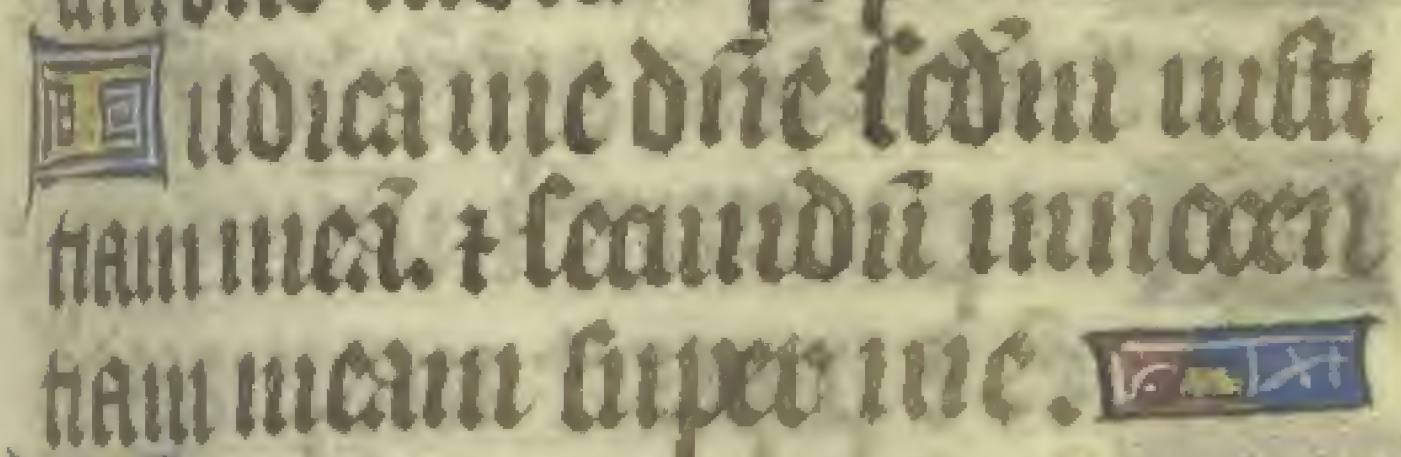 Iudica me dn̄e scd̄m iusti
tiam meā. ⁊ secundū innocen
tiam meam super me.